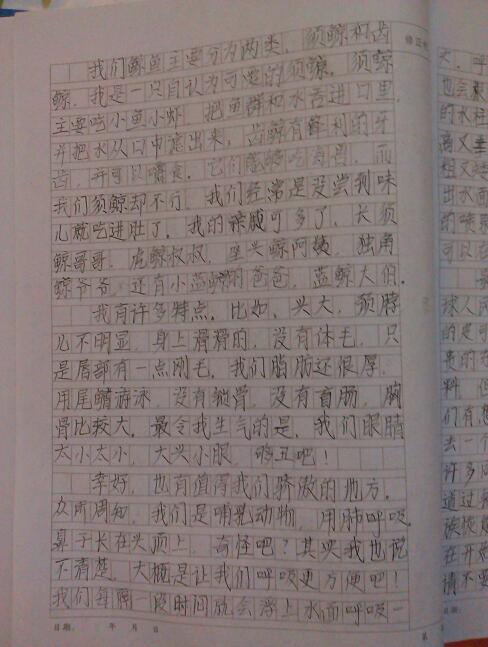 修正
我们鲸鱼主要分为两类，须鲸和齿
鲸，我是一只自认为可爱的须鲸，须鲸
主要吃小鱼小虾，把鱼群和水吞进口里，
并把水从口中滤出来，齿鲸有锋利的牙
齿，并可以嚼食，它们能够吃海兽，而
我们须鲸却不行，我们经常是没尝到味
儿就吃进肚了，我的亲戚可多了，长须
鲸哥哥，虎鲸叔叔，座头鲸阿姨，独角
鲸爷爷，还有小蓝鲸的爸爸，蓝鲸大伯。
我有许多特点，比如，头大，颈脖
儿不明显，身上滑滑的，没有体毛，只
是唇部有一点刚毛，我们脂肪还很厚，
用尾鳍游泳，没有锁骨，没有盲肠，胸
骨比较大，最令我生气的是，我们眼睛
太小太小，大头小眼，够丑吧！
幸好，也有值得我们骄傲的地方，
众所周知，我们是哺乳动物，用肺呼吸，
鼻子长在头顶上，奇怪吧？其实我也说
不清楚，大概是让我们呼吸更方便吧！
我们每隔一段时间就会浮上水面呼吸一
日期： 年 月 日
第
大，呼
也会
的水柱
高又
粗又
出水面
的喷
可以
球人
的是
贵的
料，但
们有
去一个
许多
通过
族
在开
请不要
日期：